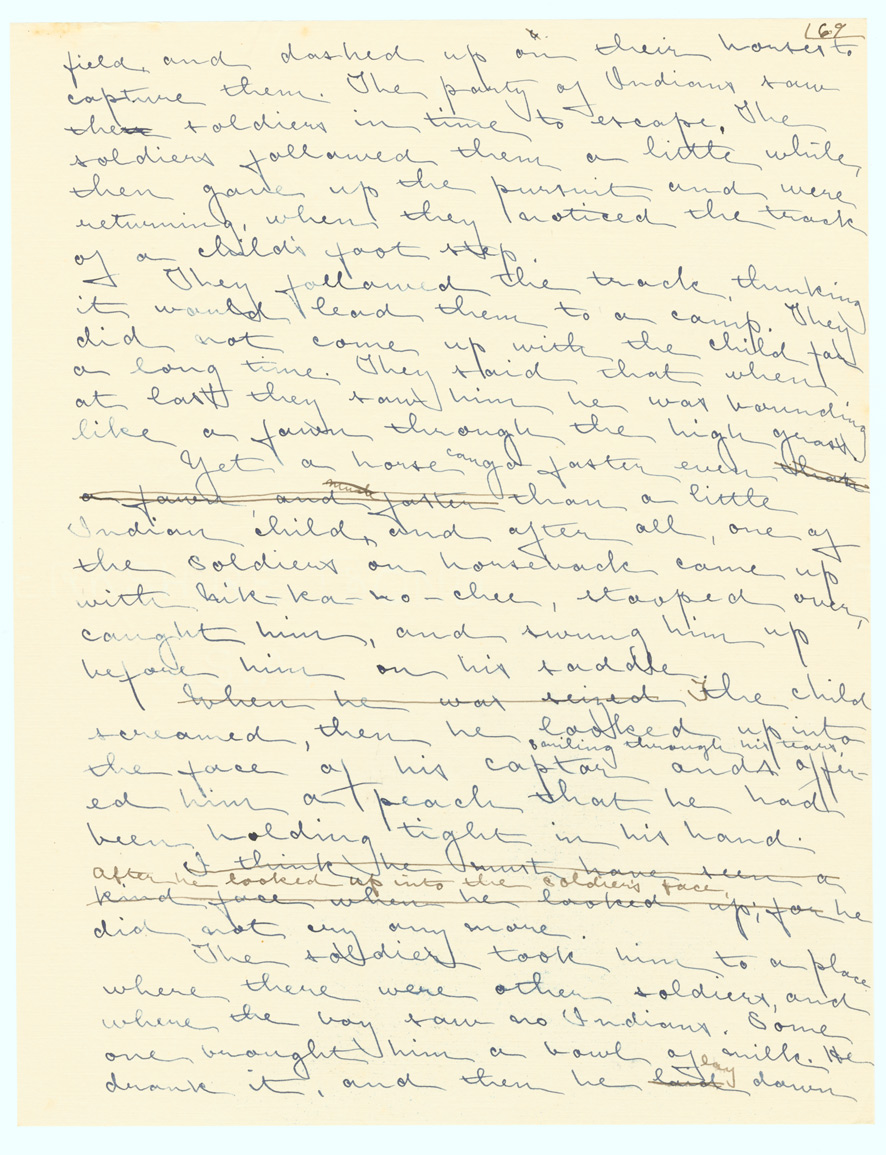 169
field, and dashed up on their horses to
capture them. The party of Indians saw
the soldiers in time to escape. The
soldiers followed them a little while,
then gave up the pursuit and were
returning, when they noticed the track
of a child's foot step.
They followed the track, thinking
it would lead them to a camp. They
did not come up with the child for
a long time. They said that when
at last they saw him he was bounding
like a fawn through the high grass.
Yet a horse can go faster even than
a fawn and much faster than a little
Indian child, and after all, one of
the soldiers on horseback came up
with Nik-ka-no-chee, stooped over,
caught him, and swung him up
before him on his saddle.
When he was seized The child
screamed, then he looked up into
smiling through his tears
the face of his captor and offer-
ed him a peach that he had
been holding tight in his hand.
I think he must have seen a
after he looked up into the soldier's face,
kind face when he looked up; for he
did not cry any more.
The soldier took him to a place
where there were other soldiers, and
where the boy saw no Indians. Some
one brought him a bowl of milk. He
lay
drank it, and then he laid down